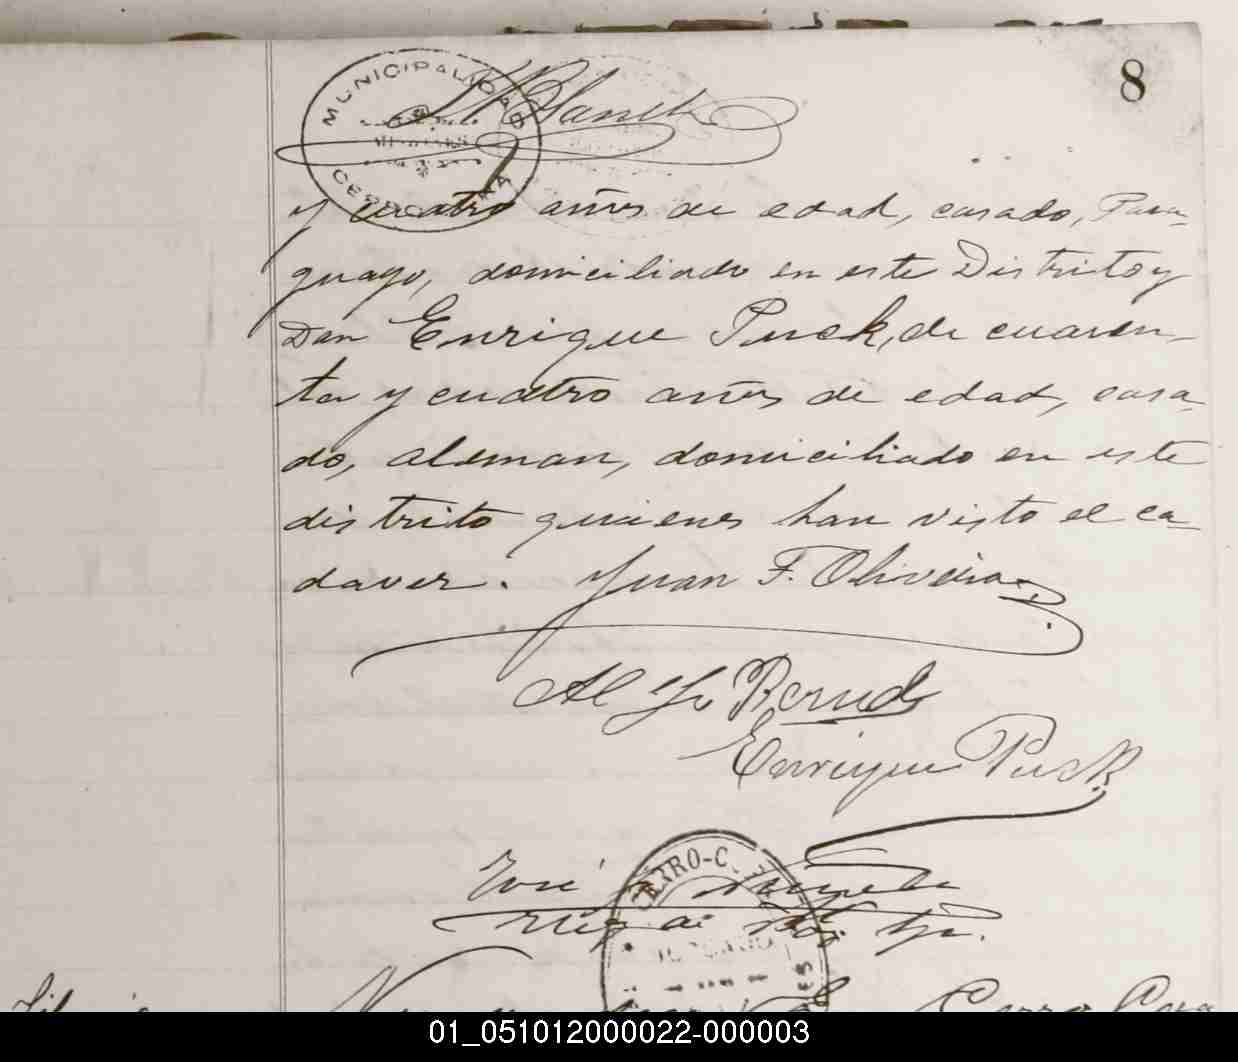 8
MUNICIPALIDAD
Blanck
y cuatro años de edad, casado, Para-
guayo, domiciliado en este Distrito y
Don Enrique Puck, de cuaren-
ta y cuatro años de edad, casa-
do, aleman, domiciliado en este
distrito quienes han visto el ca-
daver. Juan F. Oliveira
Enrique Puck
CERRO-C
José
Cerro Cora
01_051012000022-000003